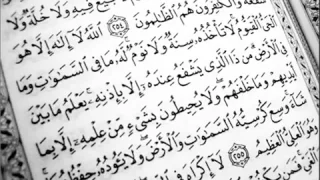 بَيْعٌ فِيهِ وَلَا خُلَّةٌ وَلَا
شَفَٰعَةٌ وَالْكَٰفِرُونَ هُمُ الظَّٰلِمُونَ ٢٥٤ اللَّهُ لَا إِلَٰهَ إِلَّا هُوَ
الْحَيُّ الْقَيُّومُ لَا تَأْخُذُهُ سِنَةٌ وَلَا نَوْمٌ لَهُ مَا فِي السَّمَٰوَٰتِ وَمَا
فِي الْأَرْضِ مَن ذَا الَّذِي يَشْفَعُ عِندَهُ إِلَّا بِإِذْنِهِ يَعْلَمُ مَا بَيْنَ
أَيْدِيهِمْ وَمَا خَلْفَهُمْ وَلَا يُحِيطُونَ بِشَيْءٍ مِّنْ عِلْمِهِ إِلَّا بِمَا
شَاءَ وَسِعَ كُرْسِيُّهُ السَّمَٰوَٰتِ وَالْأَرْضَ وَلَا يَئُودُهُ حِفْظُهُمَا
وَهُوَ الْعَلِيُّ الْعَظِيمُ ٢٥٥ لَا إِكْرَاهَ فِي
الْغَيِّ فَمَن يَكْفُرْ